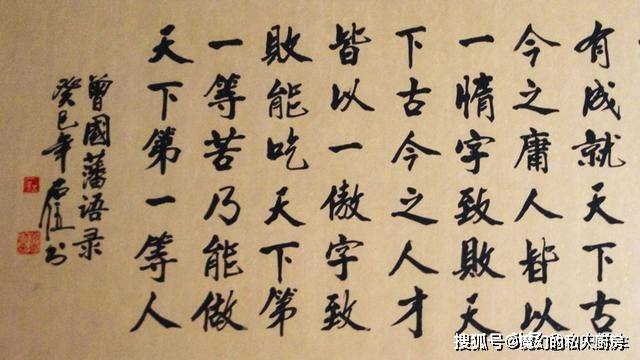 有成就天下古
今之庸人皆以
一惰字致敗天
下古今之人才
皆以一傲字致
敗能吃天下第
一等苦乃能做
天下第一等人
曾國藩语录
癸巳年
书
搜狐号@魔幻的私人厨房